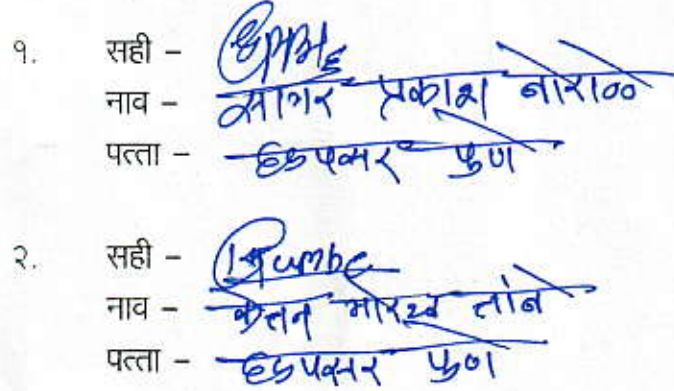 १. सही -
नाव - सागर प्रकाश बोराळे
पत्ता - हडपसर पुणे
२. सही -
नाव - केतन गोरख तांबे
पत्ता - हडपसर पुणे